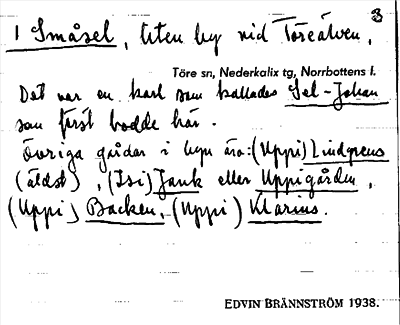 3
1 Småsel, liten by vid Töreälven,
Töre sn, Nederkalix tg, Norrbottens l.
Det var en karl som kallades Sel-Johan
som först bodde här.
Övriga gårdar i byn äro: (Uppi) Lindgrens
(äldst), (Isi) Jank eller Uppigården,
(Uppi) Backen, (Uppi) Klarius.
EDVIN BRÄNNSTRÖM 1938.